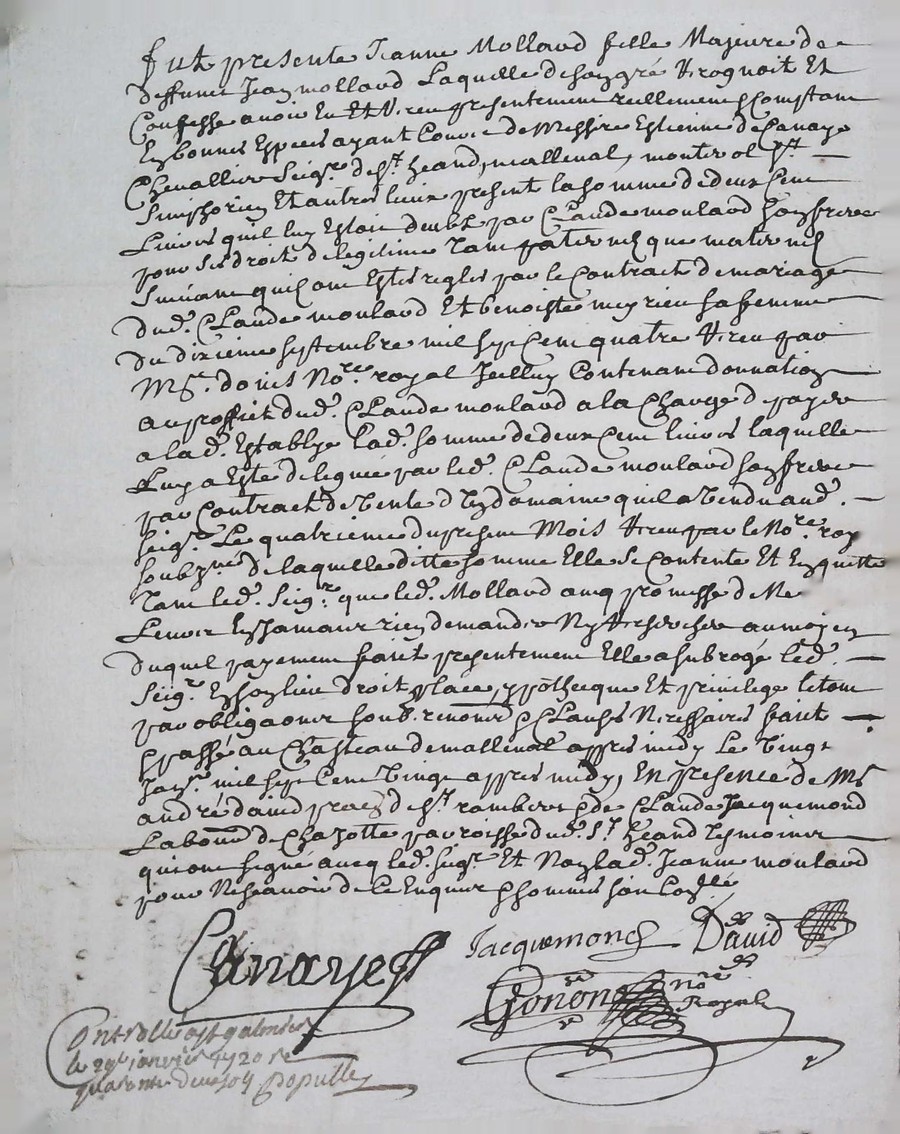 Fut presente Jeanne Mollard fille Majeure de
deffunct Jean mollard Laquelle de son gré Recognoit Et
Confesse avoir Eu Et Receu presentement reellement comptant
En bonnes Especes ayant Cours de Messire Estienne de Canaye
Chevallier Seigr. de st. heand, malleval, montrol St.
Simphorien Et autres lieux present la somme de deux Cent
Livres quil luy Estoit deube par Claude moulard son frere
pour ses droit de legitime Tant paternel que maternel
Suivant quils ont Estes regles par le Contract de mariage
dud. Claude moulard Et benoiste meyrieu sa femme
du dixieme septembre mil sept Cent quatre Receu par
Mre. donis Nore. royal Jcelluy Contenant donnation
au proffict dud. Claude moulard a la Charge de payer
a lad. Establye lad. somme de deux Cent livres laquelle
Luy a Esté deleguée par led. Claude moulard son frere
par Contract de Vente d'un domaine quil a Vendu aud.
seigr. Le quatrieme du present Mois Receu par le Nore. roy
soubzné. de laquelle ditte somme Elle se Contente Et En quitte
Tant led. Seigr. que led. Mollard avec promesse de Ne
Leur En Jamaux rien demander Ny Rechercher au moyen
duquel payement faict presentement Elle a subrogé led.
Seigr. En son lieu droit place, ypotheque Et privilege le tout
par obligaons soub. renons. & Clauses Necessaires faict
& passé au Chasteau de malleval appres midy Le Vingt
Janr. mil sept Cent Vingt appres midy, En presence de Mr
andré david de st. rambert & de Claude Jacquemond
Labour de Chazotte parroisse dud. St. heand Tesmoins
qui ont signé avecq led. seigr. Et Non lad. Jeanne moulard
pour Ne scavoir de Ce Enquise & sommée
Canaye
Jacquemond David
Gonon nore Royal
Controllé a st galmier
le 29e janvier 1720 re
quarante deux sols populle